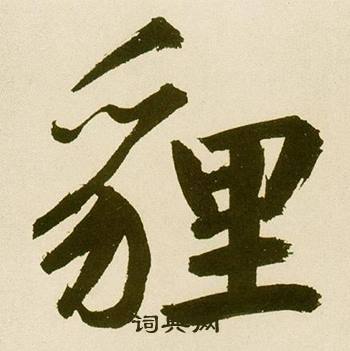 貍
词典网